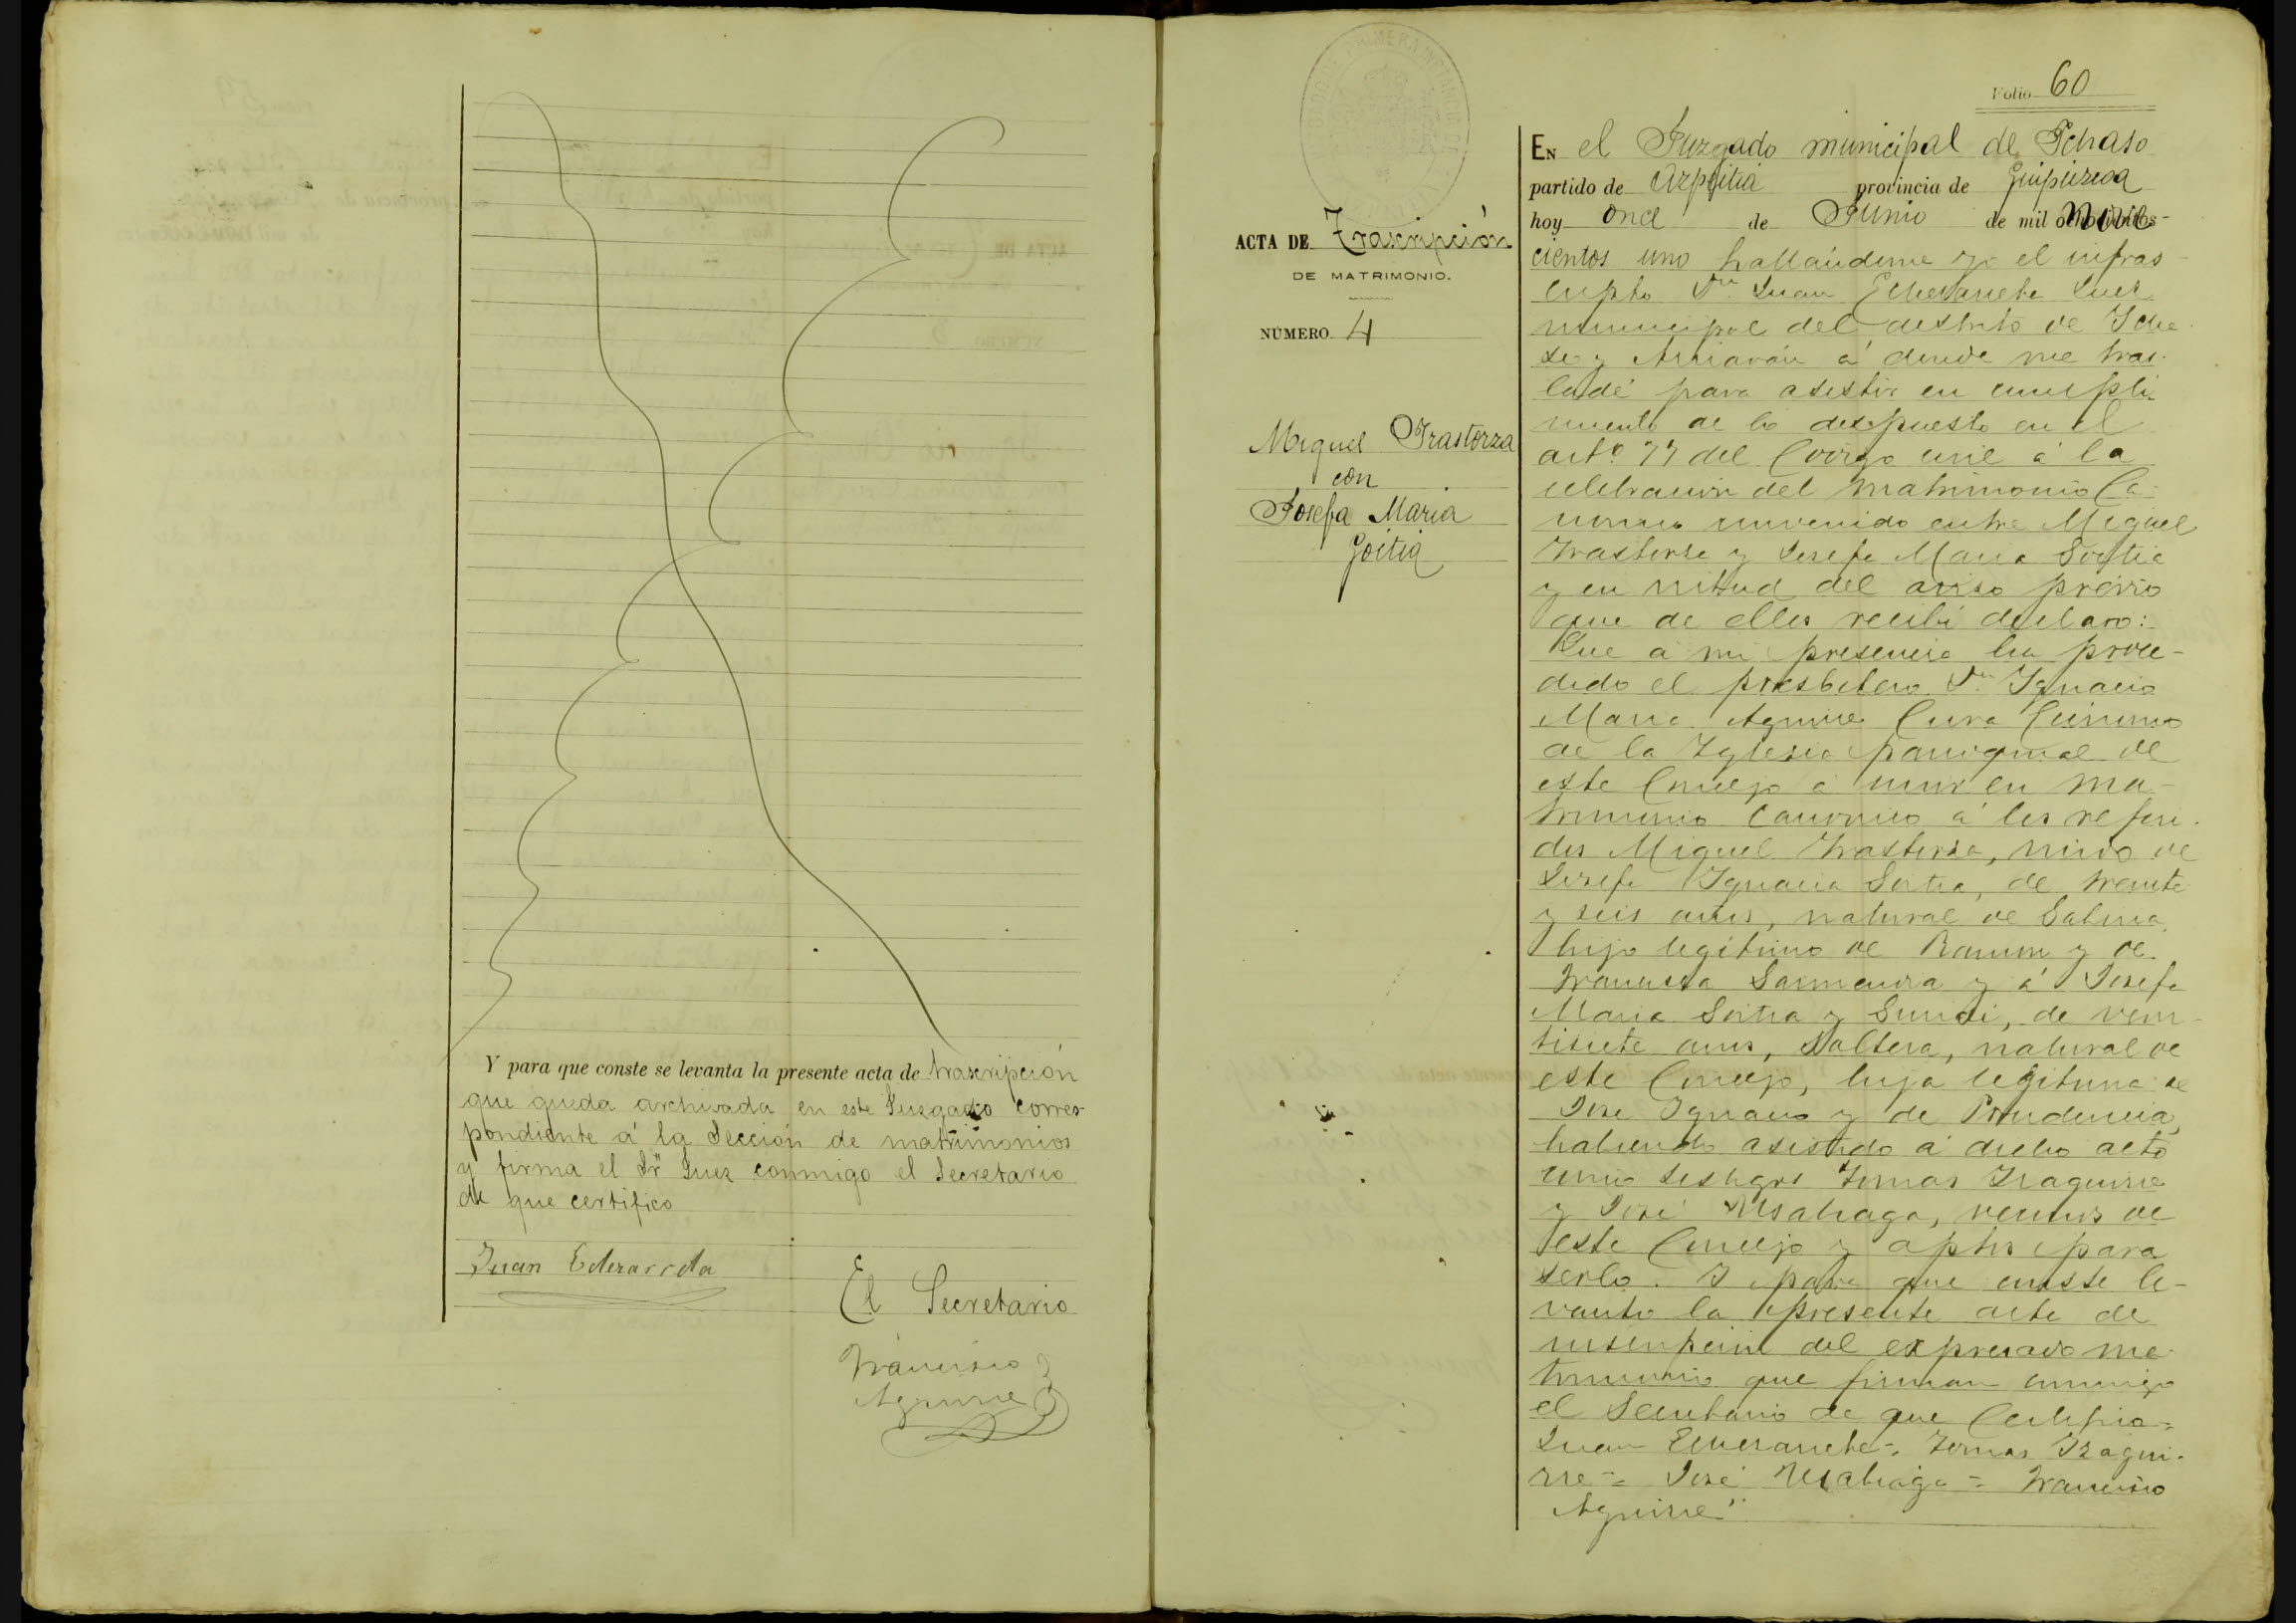 Y para que conste se levanta la presente acta de trascripción
que queda archivada en este Juzgado corres-
pondiente á la Sección de matrimonios
y firma el Sr Juez conmigo el Secretario
de que certifico
Juan Echezarreta
El Secretario
Francisco
Aguirre
JUZGADO DE PRIMERA INSTANCIA DE
Folio 60
ACTA DE Trascripción
DE MATRIMONIO.
NÚMERO 4
Miguel Irastorza
con
Josefa Maria
Goitia
EN el Juzgado municipal de Ichaso
partido de Azpeitia provincia de Guipúzcoa
hoy once de Junio de mil nove-
cientos uno hallándome yo el infras-
cripto Dn Juan Echezarreta Juez
municipal del distrito de Icha-
so y Arriarán á donde me tras-
ladé para asistir en cumpli-
miento de lo dispuesto en el
artº 77 del Codigo civil á la
celebracion del matrimonio Ca-
nonico convenido entre Miguel
Irastorza y Josefa Maria Goitia
y en virtud del aviso previo
que de ellos recibí declaro:
Que a mi presencia ha proce-
dido el presbitero Dn Ignacio
Maria Aguirre Cura Ecónomo
de la Iglesia parroquial de
este Concejo á unir en ma-
trimonio Canonico á los referi-
dos Miguel Irastorza, viudo de
Josefa Ignacia Goitia, de treinta
y seis años, natural de Gabiria,
hijo legítimo de Ramon y de
Francisca Sarmendia y á Josefa
Maria Goitia y, de vein-
tisiete años, Soltera, natural de
este Concejo, hija legitima de
José Ignacio y de Prudencia,
habiendo asistido á dicho acto
como testigos Tomas Izaguirre
y José Usabiaga, vecinos de
este Concejo y aptos para
serlo. Y para que conste le-
vanto la presente acta de
inscripcion del expresado ma-
trimonio que firman conmigo
el Secretario de que Certifico=
Juan Echezarreta=. Tomas Izagui-
rre = José Usabiaga = Francisco
Aguirre"